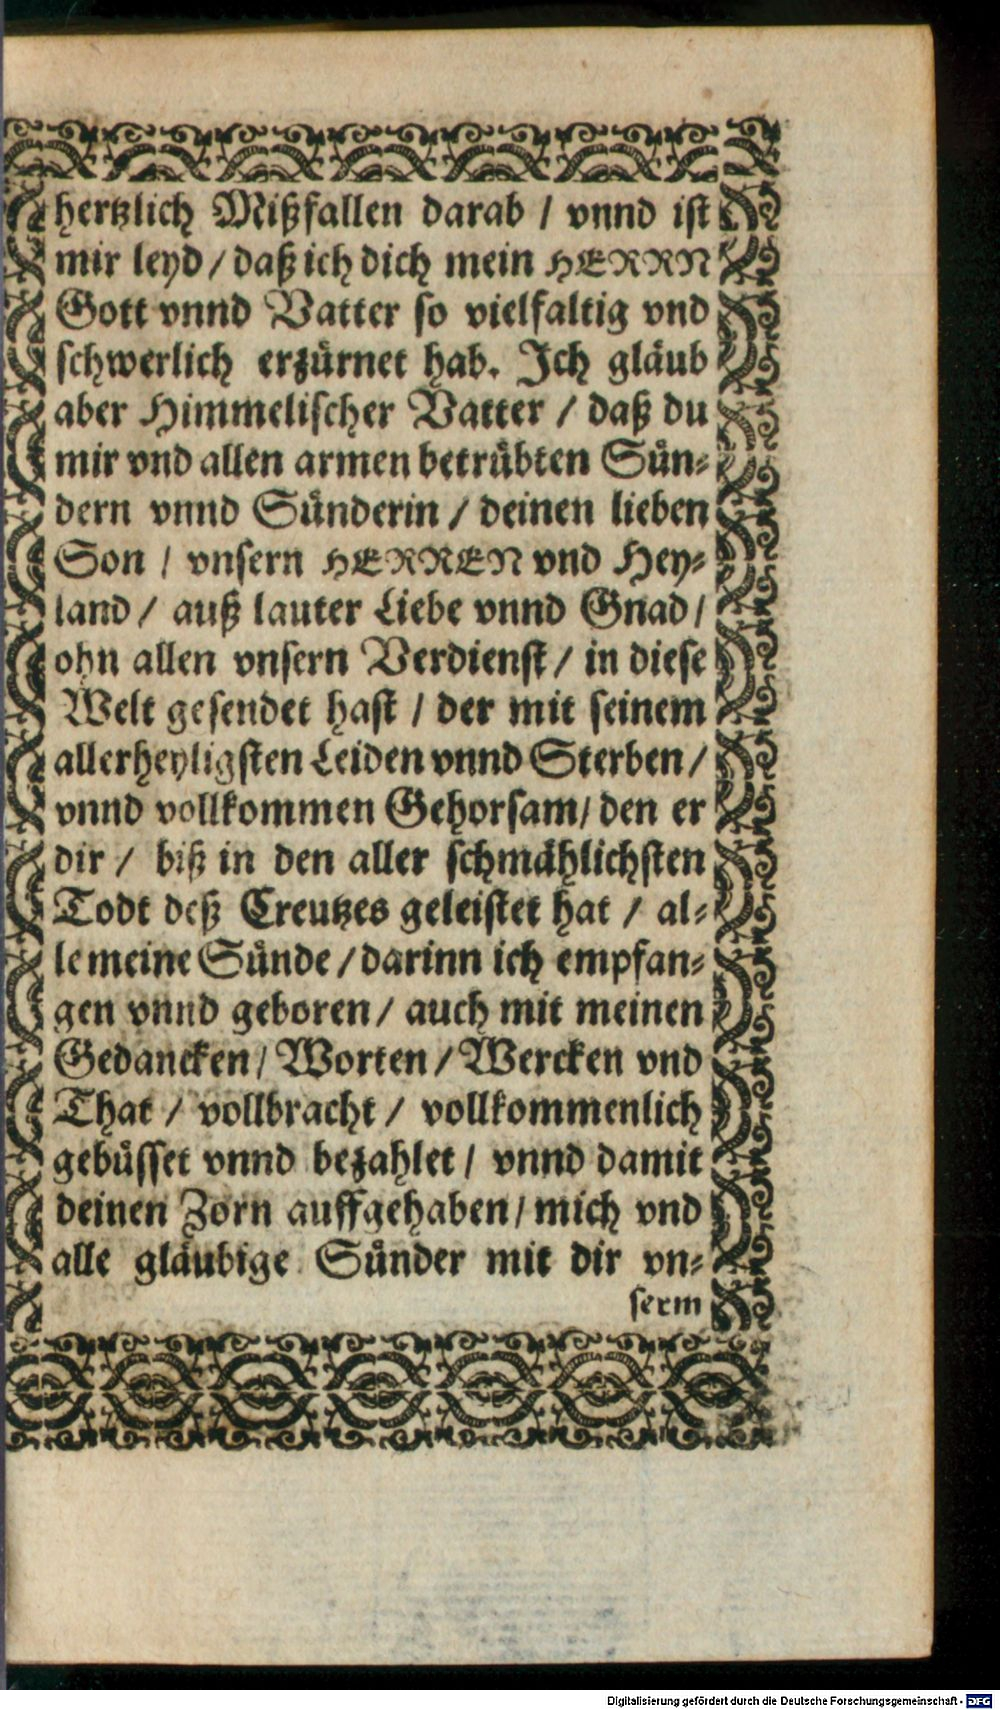 hertzlich Mißfallen darab / vnnd ist
mir leyd / daß ich dich mein HERRN
Gott vnnd Vatter so vielfaltig vnd
schwerlich erzürnet hab. Ich gläub
aber Himmelischer Vatter / daß du
mir vnd allen armen betrübten Sün⸗
dern vnnd Sünderin / deinen lieben
Son / vnsern HERREN vnd Hey⸗
land / auß lauter Liebe vnnd Gnad /
ohn allen vnsern Verdienst / in diese
Welt gesendet hast / der mit seinem
allerheyligsten Leiden vnnd Sterben /
vnnd vollkommen Gehorsam / den er
dir / biß in den aller schmählichsten
Todt deß Creutzes geleistet hat / al⸗
le meine Sünde / darinn ich empfan⸗
gen vnnd geboren / auch mit meinen
Gedancken / Worten / Wercken vnd
That / vollbracht / vollkommenlich
gebüsset vnnd bezahlet / vnnd damit
deinen Zorn auffgehaben / mich vnd
alle gläubige Sünder mit dir vn⸗
serm
Digitalisierung gefördert durch die Deutsche Forschungsgemeinschaft - DFG